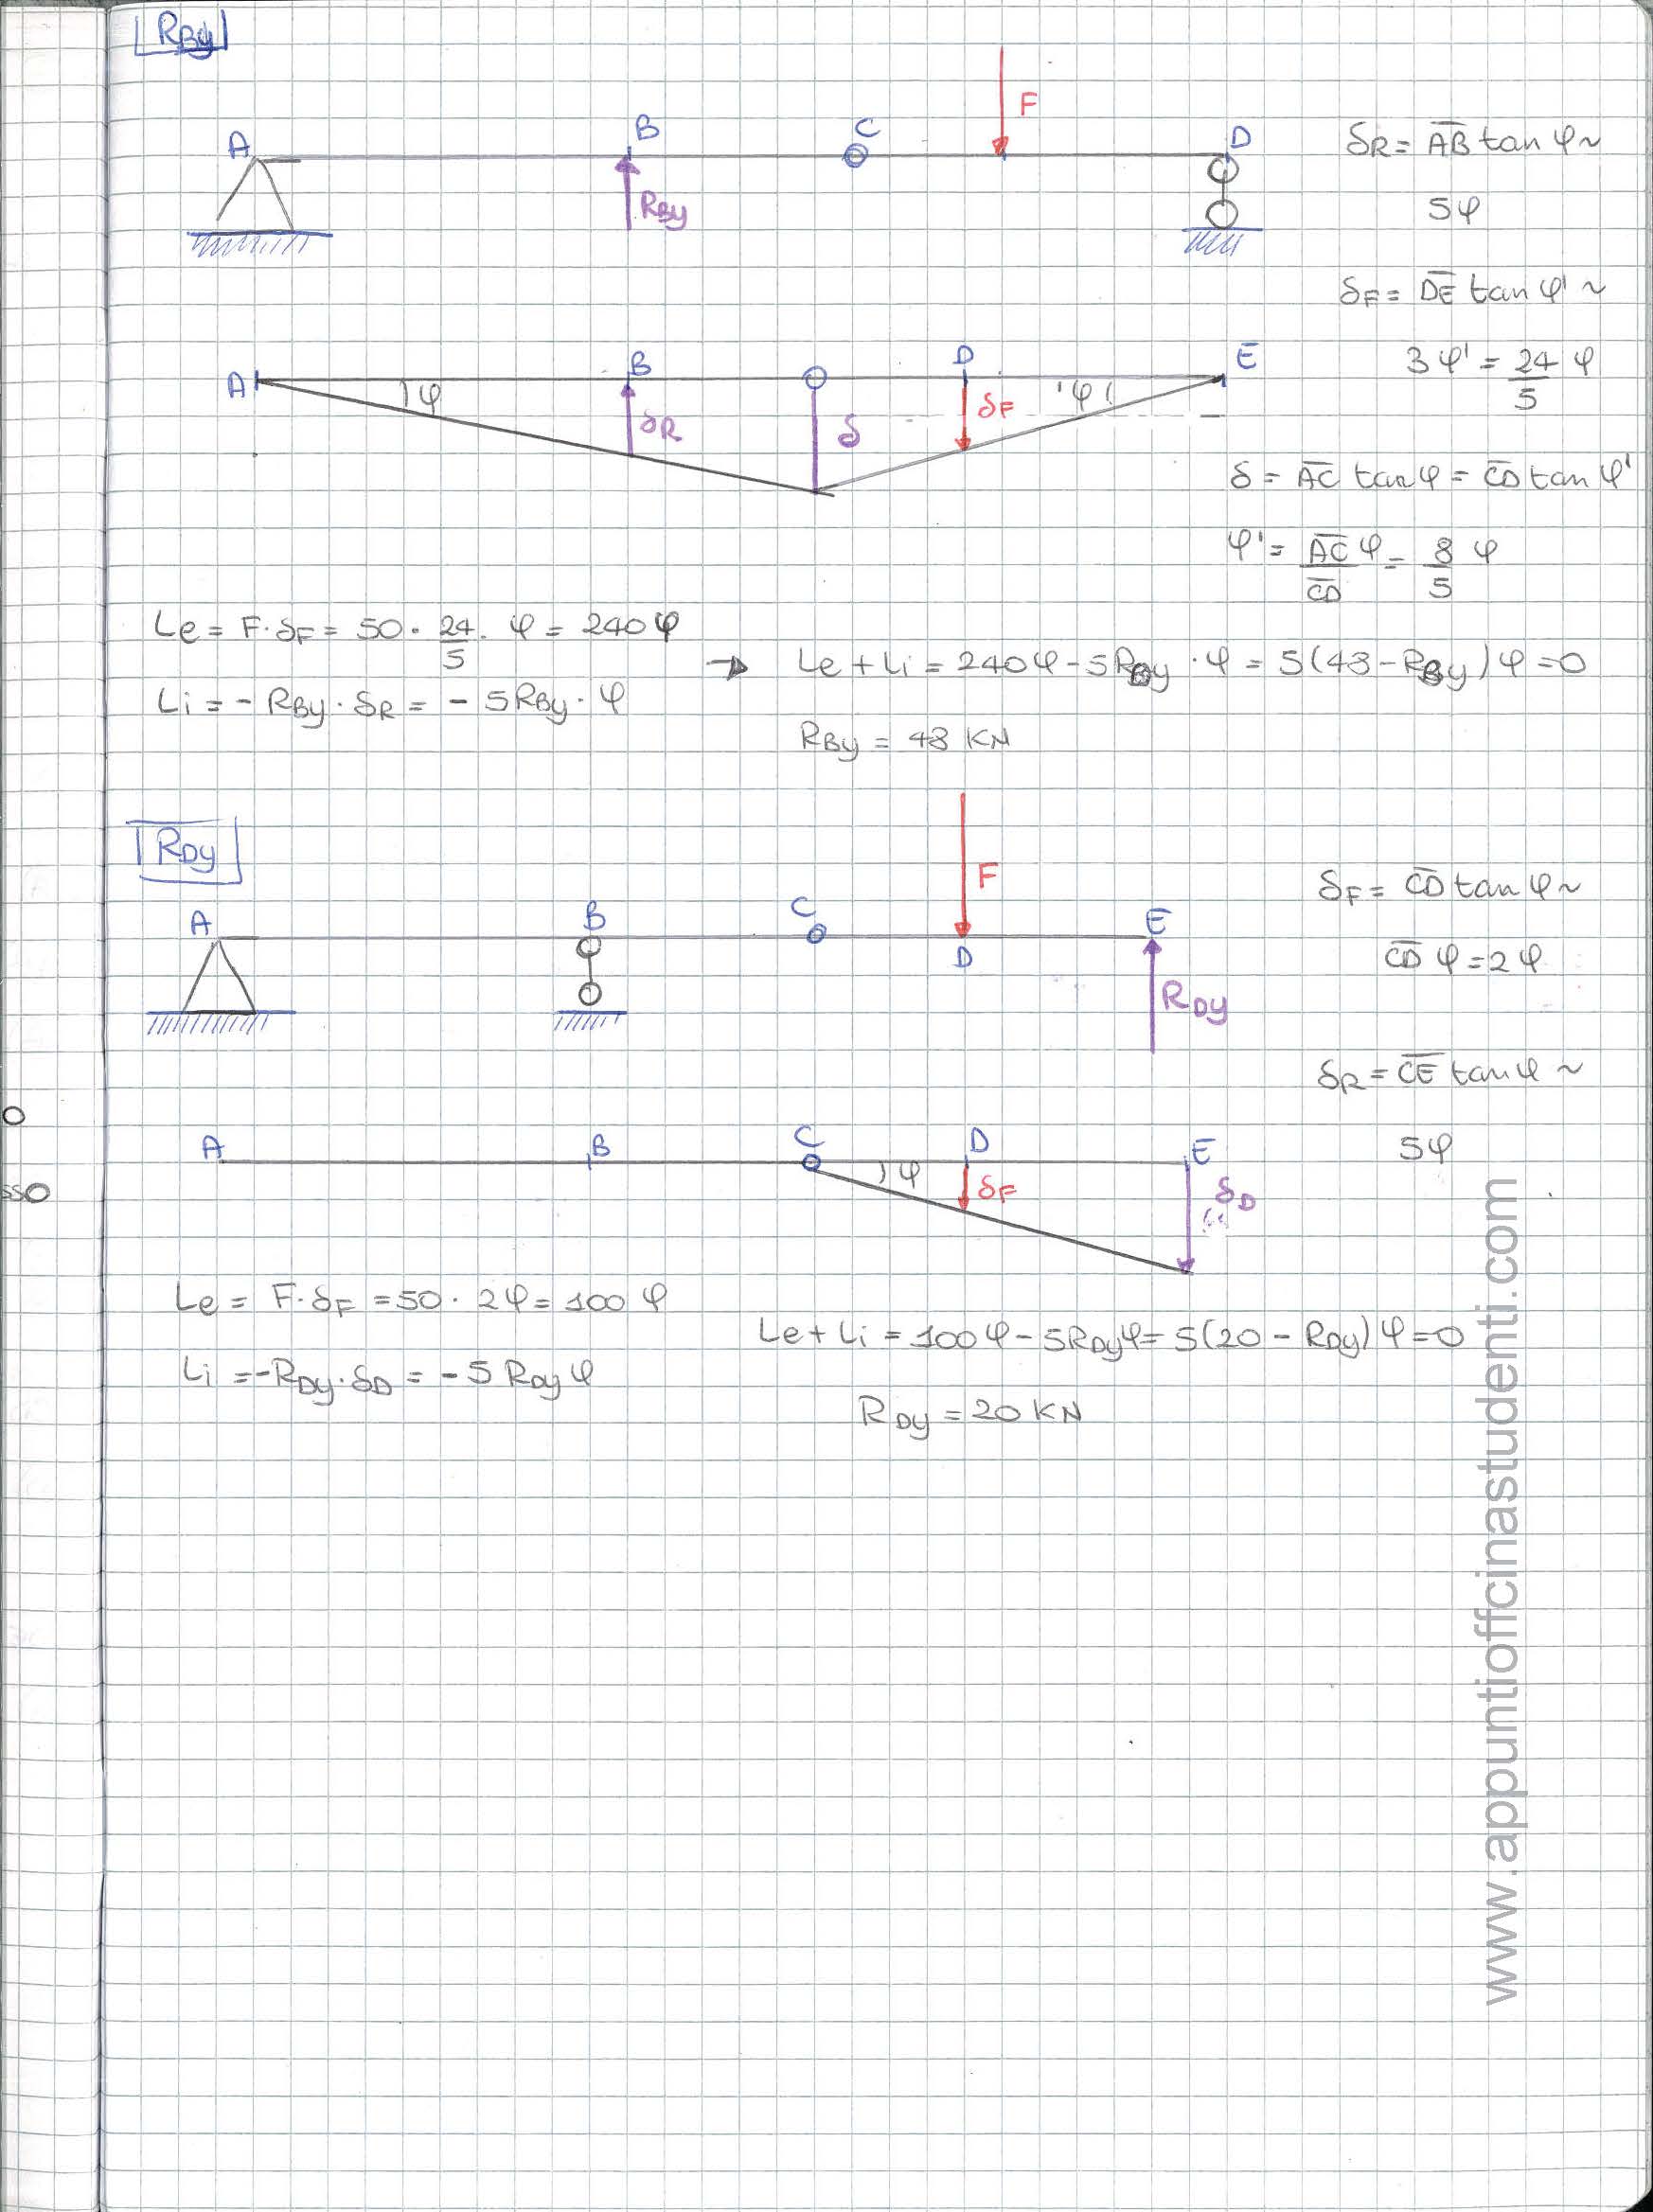 RBy
F
A B C D
RBy
δR = AB tan φ ~
5φ
δF = DE tan φ' ~
3φ' = 24/5 φ
A B D E
φ δR δ δF φ'
δ = AC tan φ = CD tan φ'
φ' = AC/CD φ = 8/5 φ
Le = F · δF = 50 · 24/5 · φ = 240 φ
→ Le + Li = 240φ - 5RBy · φ = 5(48 - RBy)φ = 0
Li = - RBy · δR = - 5RBy · φ
RBy = 48 KN
RDy
F
A B C D E
RDy
δF = CD tan φ ~
CD φ = 2φ
δR = CE tan φ ~
5φ
A B C D E
φ δF δD
Le = F · δF = 50 · 2φ = 100 φ
Le + Li = 100φ - 5RDyφ = 5(20 - RDy)φ = 0
Li = -RDy · δD = - 5 RDy φ
RDy = 20 KN
www.appuntiofficinastudenti.com